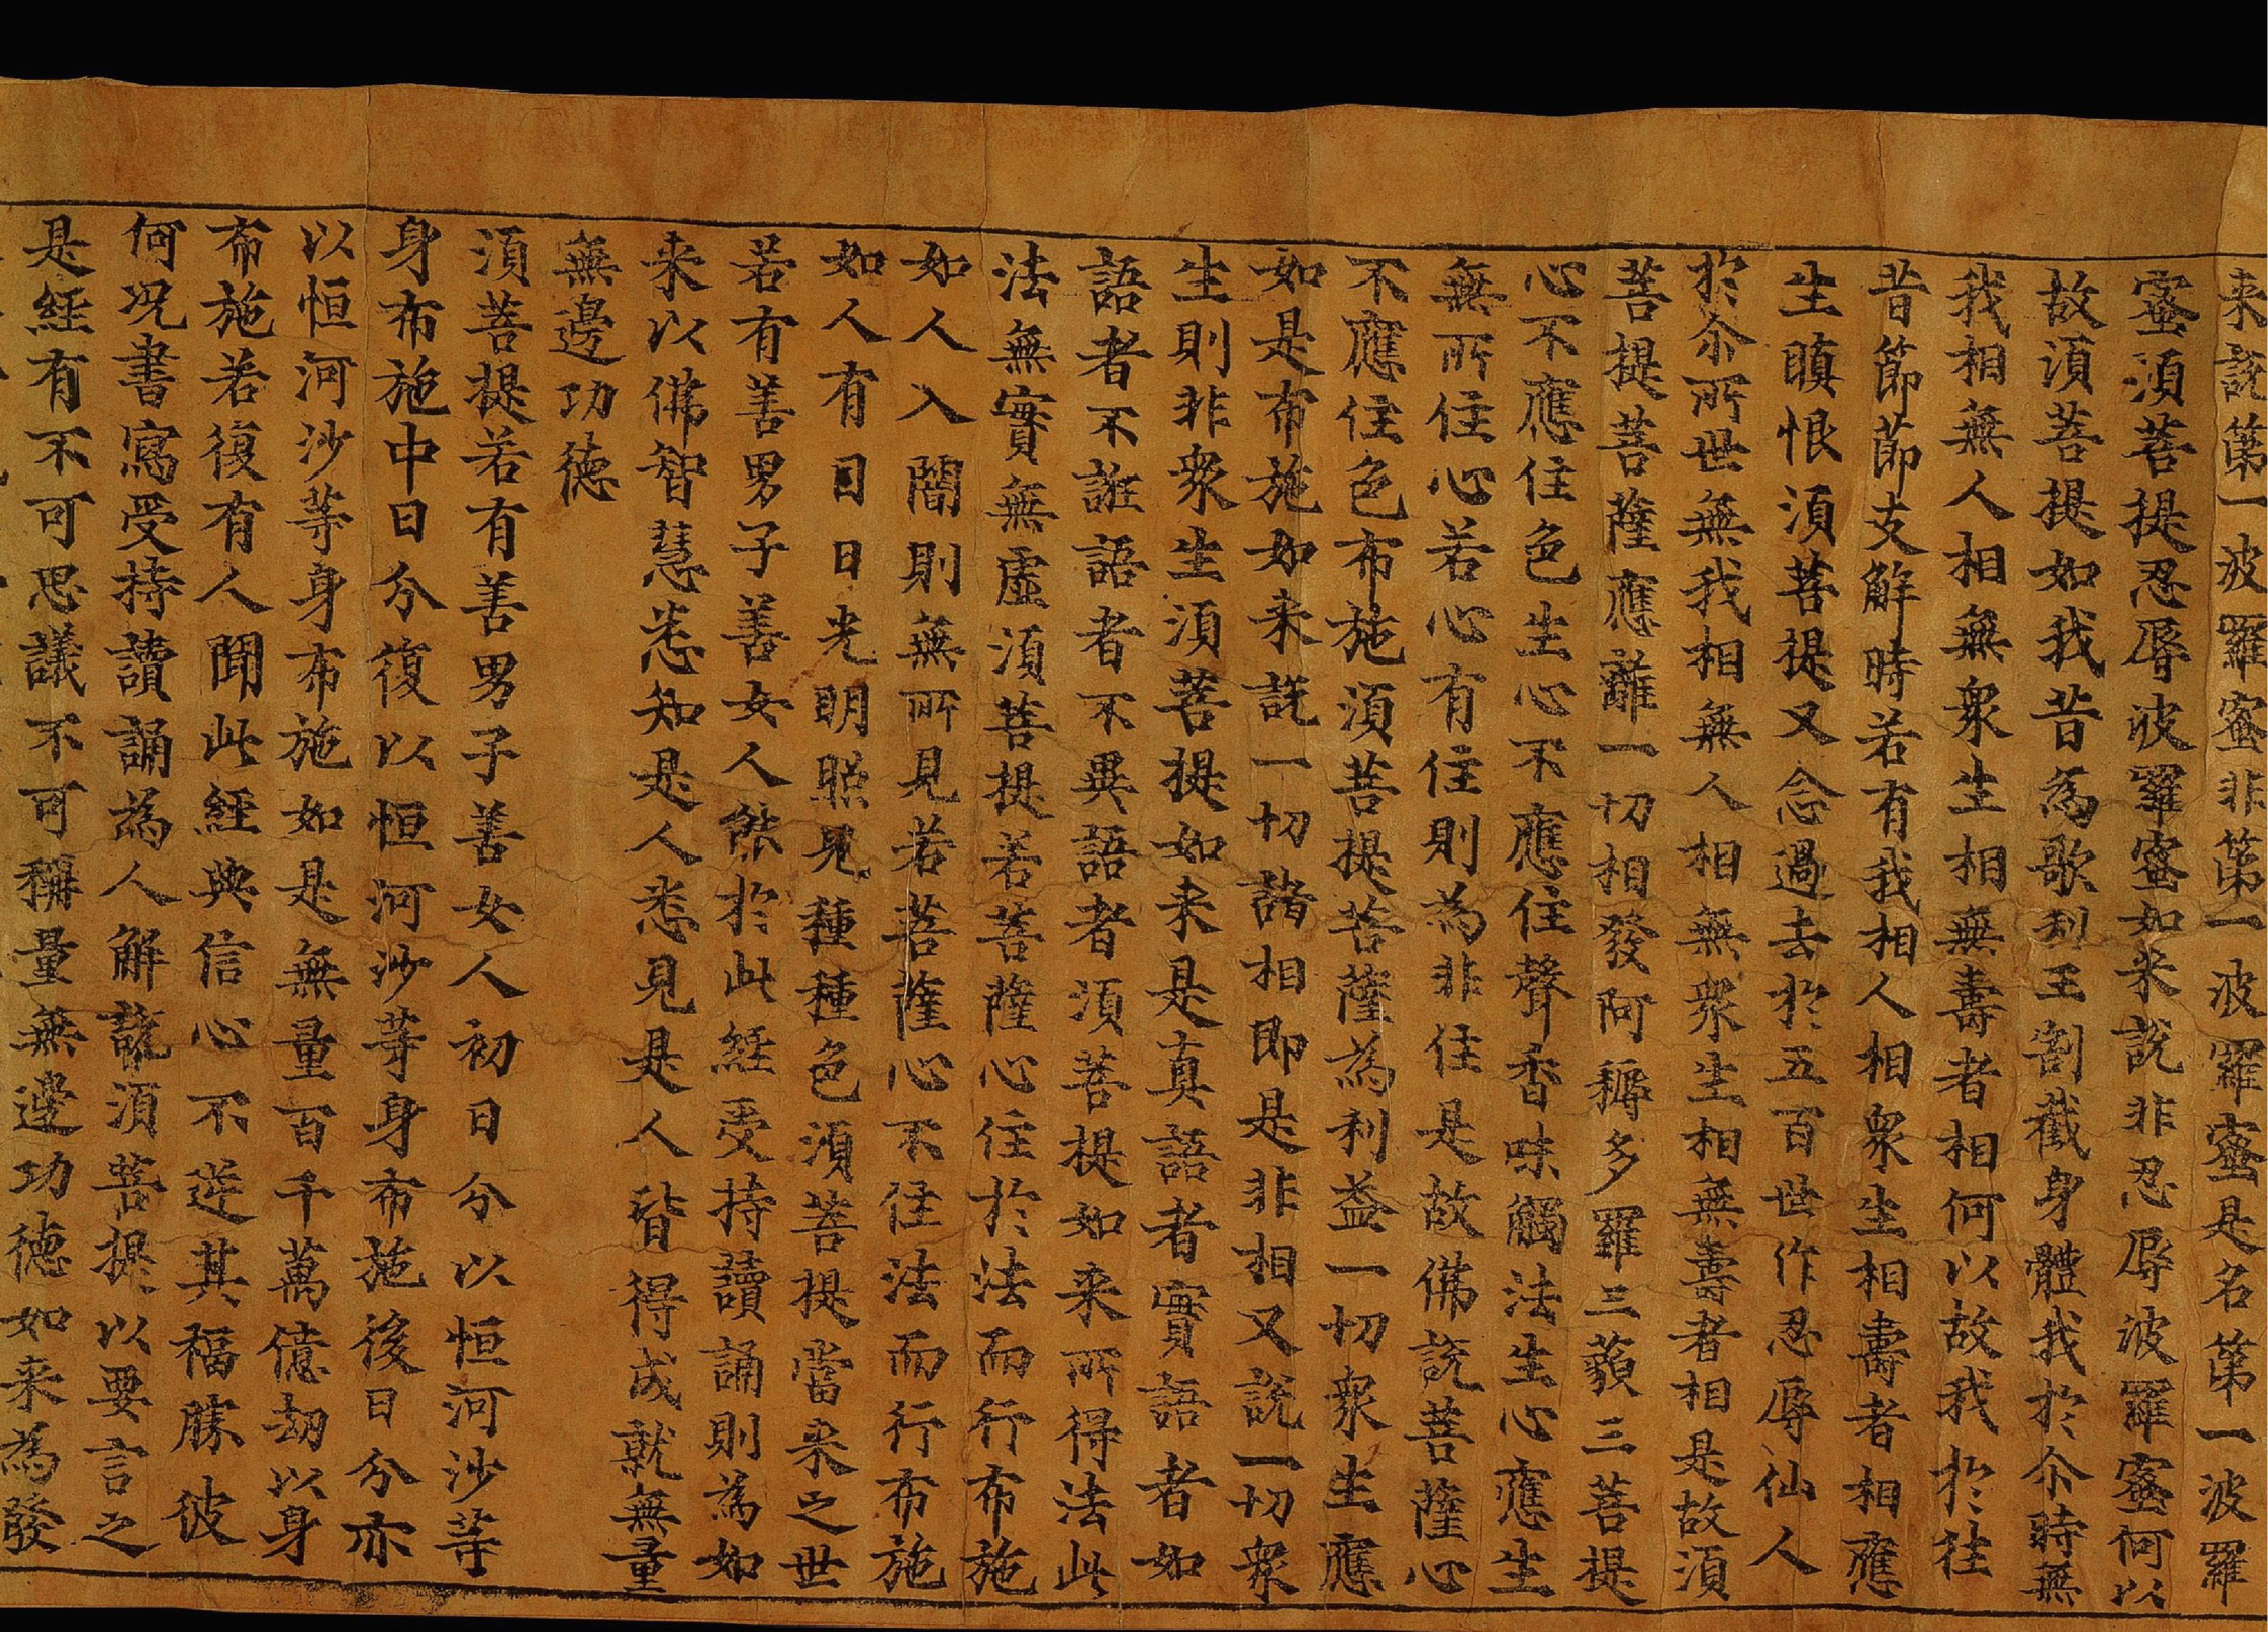 来說第一波羅蜜非第一波羅蜜是名第一波羅
蜜須菩提忍辱波羅蜜如来說非忍辱波羅蜜何以
故須菩提如我昔為歌利王割截身體我於尒時無
我相無人相無衆生相無壽者相何以故我於往
昔節節支解時若有我相人相衆生相壽者相應
生瞋恨須菩提又念過去於五百世作忍辱仙人
於尒所世無我相無人相無衆生相無壽者相是故須
菩提菩薩應離一切相發阿耨多羅三藐三菩提
心不應住色生心不應住聲香味觸法生心應生
無所住心若心有住則為非住是故佛說菩薩心
不應住色布施須菩提菩薩為利益一切衆生應
如是布施如来說一切諸相即是非相又說一切衆
生則非衆生須菩提如来是真語者實語者如
語者不誑語者不異語者須菩提如来所得法此
法無實無虛須菩提若菩薩心住於法而行布施
如人入闇則無所見若菩薩心不住法而行布施
如人有目日光明照見種種色須菩提當来之世
若有善男子善女人能於此經受持讀誦則為如
来以佛智慧悉知是人悉見是人皆得成就無量
無邊功德
須菩提若有善男子善女人初日分以恒河沙等
身布施中日分復以恒河沙等身布施後日分亦
以恒河沙等身布施如是無量百千萬億劫以身
布施若復有人聞此經典信心不逆其福勝彼
何況書寫受持讀誦為人解說須菩提以要言之
是經有不可思議不可稱量無邊功德如来為發